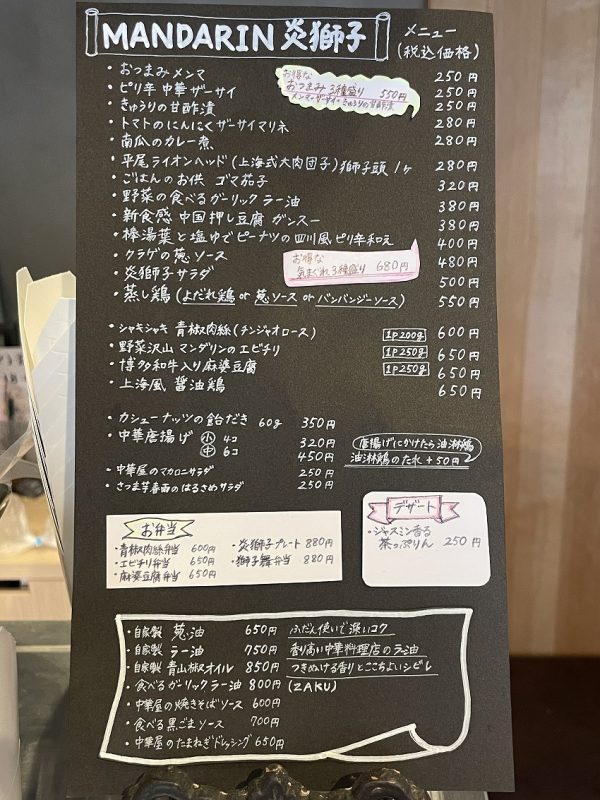 MANDARIN 炎獅子
メニュー
(税込価格)
・おつまみメンマ 250円
・ピリ辛 中華 ザーサイ 250円
・きゅうりの甘酢漬 250円
お得な
おつまみ3種盛り 550円
メンマ・ザーサイ・きゅうりの甘酢漬
・トマトのにんにくザーサイマリネ 280円
・南瓜のカレー煮 280円
・平尾ライオンヘッド(上海式大肉団子)獅子頭 1ヶ 280円
・ごはんのお供 ゴマ茄子 320円
・野菜の食べるガーリック ラー油 380円
・新食感 中国押し豆腐 ガンスー 380円
・棒湯葉と塩ゆでピーナツの四川風ピリ辛和え 400円
・クラゲの葱ソース 480円
・炎獅子サラダ 500円
お得な
気まぐれ3種盛り 680円
・蒸し鶏(よだれ鶏 or 葱ソース or バンバンジーソース) 550円
・シャキシャキ 青椒肉絲(チンジャオロース) 1P200g 600円
・野菜沢山 マンダリンのエビチリ 1P250g 650円
・博多和牛入り麻婆豆腐 1P250g 650円
・上海風 醤油鶏 650円
・カシューナッツの飴だき 60g 350円
・中華唐揚げ 小 4コ 320円
中 6コ 450円
唐揚げにかけたら油淋鶏
油淋鶏のたれ +50円
・中華屋のマカロニサラダ 250円
・さつま芋春雨のはるさめサラダ 250円
お弁当
・青椒肉絲弁当 600円
・エビチリ弁当 650円
・麻婆豆腐弁当 650円
・炎獅子プレート 880円
・獅子舞弁当 880円
デザート
・ジャスミン香る
茶っぷりん 250円
・自家製 葱油 650円 ふだん使いで深いコク
・自家製 ラー油 750円 香り高い中華料理店のラー油
・自家製 青山椒オイル 850円 つきぬける香りとここちよいシビレ
・食べるガーリックラー油 800円 (ZAKU)
・中華屋の焼きそばソース 600円
・食べる黒ごまソース 700円
・中華屋のたまねぎドレッシング 650円